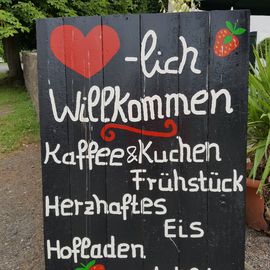 -lich
Willkommen
Kaffee&Kuchen
Frühstück
Herzhaftes
Eis
Hofladen